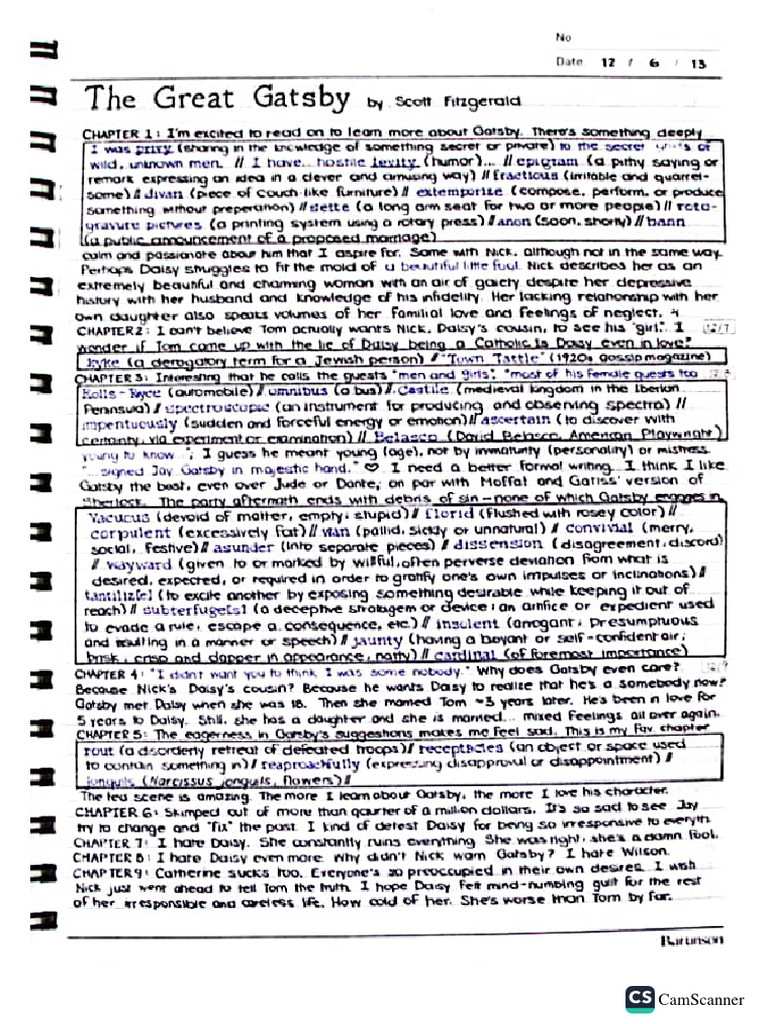 No
Date 12 / 6 / 13
The Great Gatsby by Scott Fitzgerald
CHAPTER 1: I'm excited to read on to learn more about Gatsby. There's something deeply
I was privy (sharing in the knowledge of something secret or private) to the secret griefs of
wild, unknown men. // I have.. hostile levity (humor)... // epigram (a pithy saying or
remark expressing an idea in a clever and amusing way) // fractious (irritable and quarrel-
some) // divan (piece of couch-like furniture) // extemporize (compose, perform, or produce
something without preperation) // settee (a long arm seat for two or more people) // roto-
gravure pictures (a printing system using a rotary press) / anon (soon, shortly) // bann
(a public announcement of a proposed marriage)
calm and passionate about him that I aspire for. Same with Nick, although not in the same way.
Perhaps Daisy struggles to fit the mold of a beautiful little fool. Nick describes her as an
extremely beautiful and charming woman with an air of gaiety despite her depressive
history with her husband and knowledge of his infidelity. Her lacking relationship with her
own daughter also speaks volumes of her familial love and feelings of neglect.
CHAPTER 2: I can't believe Tom actually wants Nick, Daisy's cousin, to see his "girl". I
wonder if Tom came up with the lie of Daisy being a Catholic. Is Daisy even in love?
kyke (a derogatory term for a Jewish person) // "Town Tattle" (1920s gossip magazine)
CHAPTER 3: Interesting that he calls the guests "men and girls"; "most of his female guests too
Rolls-Royce (automobile) // omnibus (a bus) // Castile (medieval kingdom in the Iberian
Peninsula) // spectroscopic (an instrument for producing and observing spectra) //
impentuously (sudden and forceful energy or emotion) // ascertain (to discover with
certainty, via experiment or examination) // Belasco (David Belasco, American Playwright)
young to know"; I guess he meant young (age), not by immaturity (personality) or mistress.
"...signed Jay Gatsby in majestic hand." ♡ I need a better formal writing. I think I like
Gatsby the best, even over Jude or Dante; on par with Moffat and Gatiss' version of
Sherlock. The party aftermath ends with debris of sin - none of which Gatsby engages in.
Vacuous (devoid of matter, empty; stupid) // florid (flushed with rosey color) //
corpulent (excessively fat) // wan (pallid, sickly or unnatural) // convivial (merry,
social, festive) // asunder (into separate pieces) // dissension (disagreement, discord)
// wayward (given to or marked by willful, often perverse deviation from what is
desired, expected, or required in order to gratify one's own impulses or inclinations) //
tantiliz[e] (to excite another by exposing something desirable while keeping it out of
reach) // subterfuge[s] (a deceptive stratagem or device; an artifice or expedient used
to evade a rule, escape a consequence, etc.) // insolent (arrogant; presumptuous
and insulting in a manner or speech) // jaunty (having a boyant or self-confident air;
brisk, crisp and dapper in appearance, natty) // cardinal (of foremost importance)
CHAPTER 4: "I didn't want you to think I was some nobody." Why does Gatsby even care?
Because Nick's Daisy's cousin? Because he wants Daisy to realize that he's a somebody now?
Gatsby met Daisy when she was 18. Then she married Tom ~3 years later. He's been in love for
5 years to Daisy. Still, she has a daughter and she is married... mixed feelings all over again.
CHAPTER 5: The eagerness in Gatsby's suggestions makes me feel sad. This is my fav. chapter
rout (a disorderly retreat of defeated troops) // receptacles (an object or space used
to contain something in) // reaproachfully (expressing disapproval or disappointment) //
jonquils (Narcissus jonquils, flowers) //
The tea scene is amazing. The more I learn about Gatsby, the more I love his character.
CHAPTER 6: Skimped out of more than qaurter of a million dollars. It's so sad to see Jay
try to change and "fix" the past. I kind of detest Daisy for being so irresponsive to everyth
CHAPTER 7: I hate Daisy. She constantly ruins everything. She was right, she's a damn fool.
CHAPTER 8: I hate Daisy even more. Why didn't Nick warn Gatsby? I hate Wilson.
CHAPTER 9: Catherine sucks too. Everyone's so preoccupied in their own desires. I wish
Nick just went ahead to tell Tom the truth. I hope Daisy felt mind-numbing guilt for the rest
of her irresponsible and careless life. How cold of her. She's worse than Tom by far.
CS CamScanner